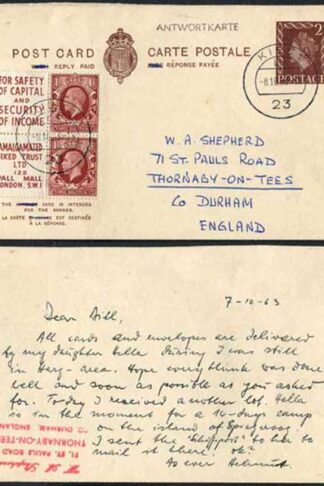 ANTWORTKARTE
POST CARD
CARTE POSTALE
WITH REPLY PAID
RÉPONSE PAYÉE
2
POSTAGE
FOR SAFETY
OF CAPITAL
AND
SECURITY
OF INCOME
AMALGAMATED
FIXED TRUST
LTD
125
PALL MALL
LONDON, S.W.I
23
23
THE ANNEXED CARD IS INTENDED
FOR THE ANSWER.
LA CARTE CI-JOINTE EST DESTINÉE
À LA RÉPONSE.
W. A. SHEPHERD
71 ST. PAULS ROAD
THORNABY-ON-TEES
Co DURHAM
ENGLAND
7-10-63
Dear Bill,
All cards and envelopes are delivered
by my daughter Hella during I was still
in Harz-area. Hope everything was done
well and soon as possible as you asked
for. To-day I received another lot. Hella
is in the moment for a 14-days camp
on the island of
I sent the to her to
mail it there. ok?
As ever Helmut.
71, ST. PAULS ROAD
THORNABY-ON-TEES
CO DURHAM, ENGLAND